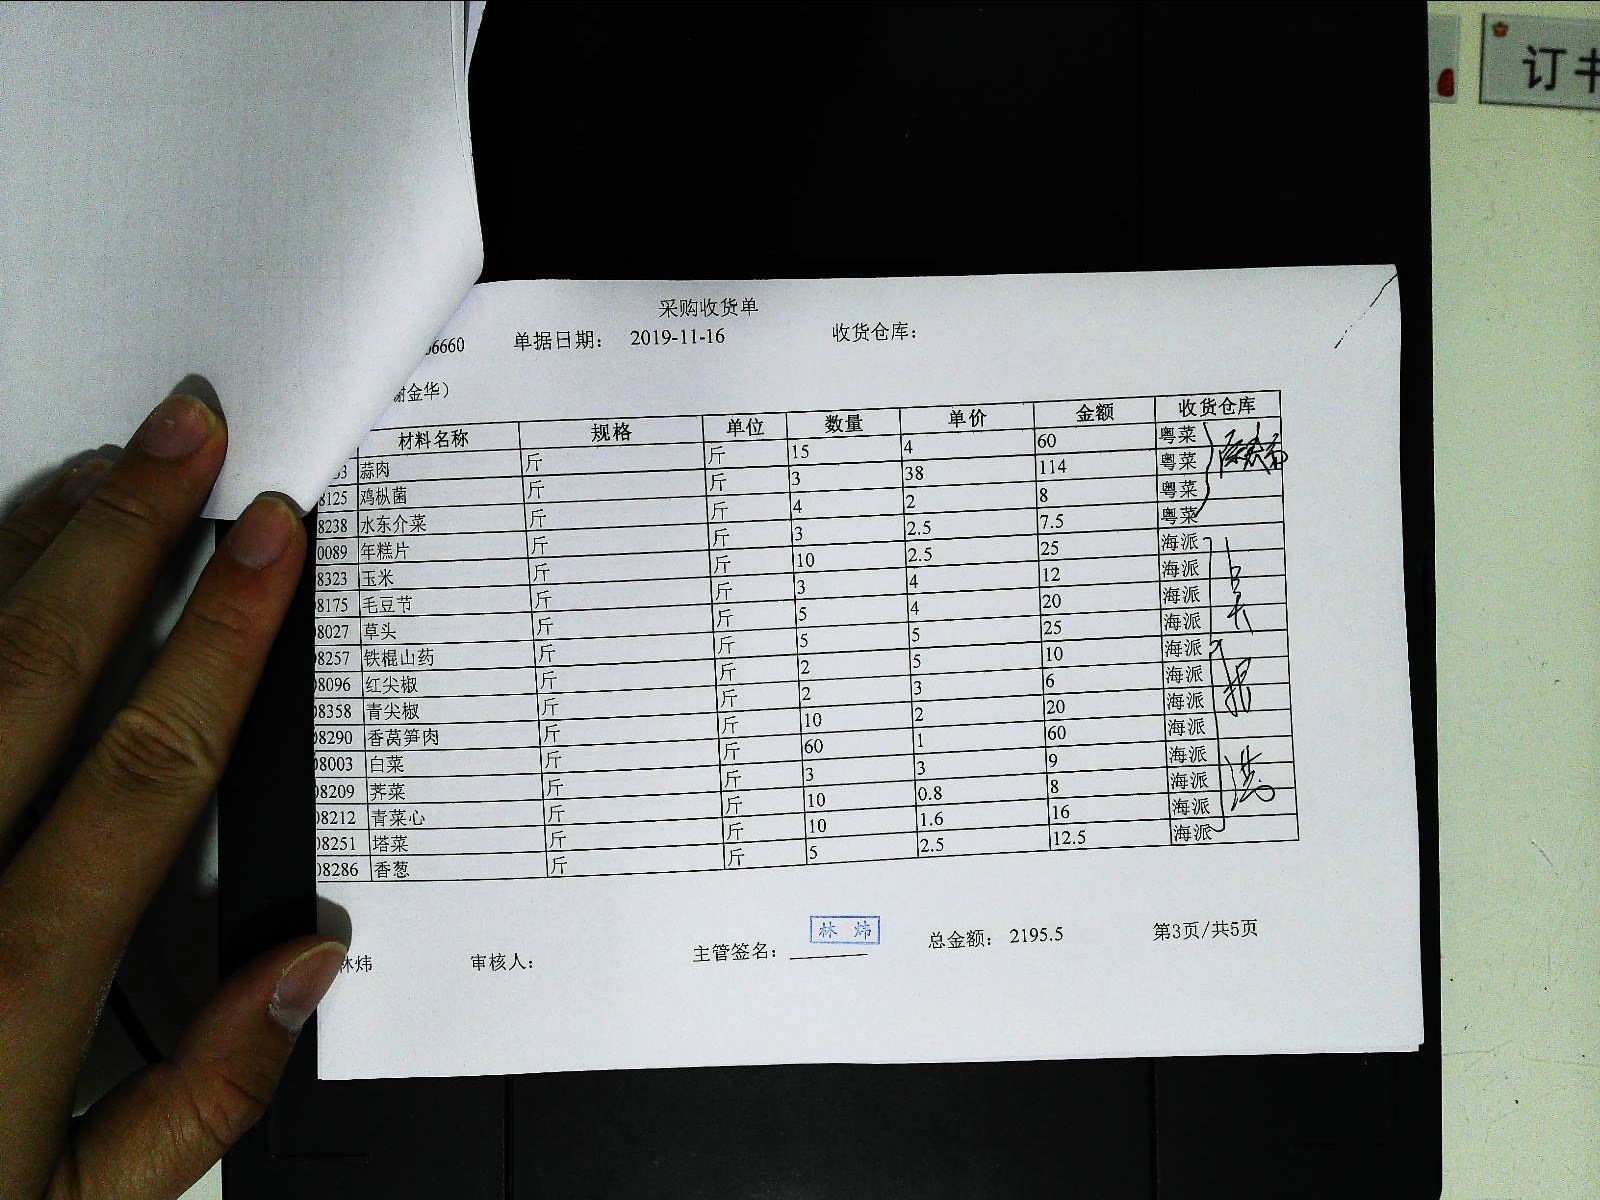 订
采购收货单
06660 单据日期： 2019-11-16 收货仓库：
谢金华）
材料名称 规格 单位 数量 单价 金额 收货仓库
蒜肉 斤 斤 15 4 60 粤菜
8125 鸡枞菌 斤 斤 3 38 114 粤菜
8238 水东介菜 斤 斤 4 2 8 粤菜
0089 年糕片 斤 斤 3 2.5 7.5 粤菜
8323 玉米 斤 斤 10 2.5 25 海派
08175 毛豆节 斤 斤 3 4 12 海派
08027 草头 斤 斤 5 4 20 海派
08257 铁棍山药 斤 斤 5 5 25 海派
08096 红尖椒 斤 斤 2 5 10 海派
08358 青尖椒 斤 斤 2 3 6 海派
08290 香莴笋肉 斤 斤 10 2 20 海派
08003 白菜 斤 斤 60 1 60 海派
08209 荠菜 斤 斤 3 3 9 海派
08212 青菜心 斤 斤 10 0.8 8 海派
08251 塔菜 斤 斤 10 1.6 16 海派
08286 香葱 斤 斤 5 2.5 12.5 海派
林炜 审核人： 主管签名： 林 炜 总金额： 2195.5 第3页/共5页